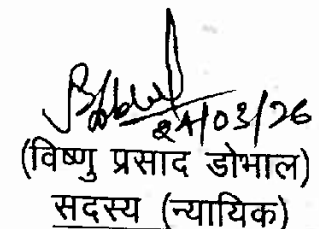 24/03/26
(विष्णु प्रसाद डोभाल)
सदस्य (न्यायिक)